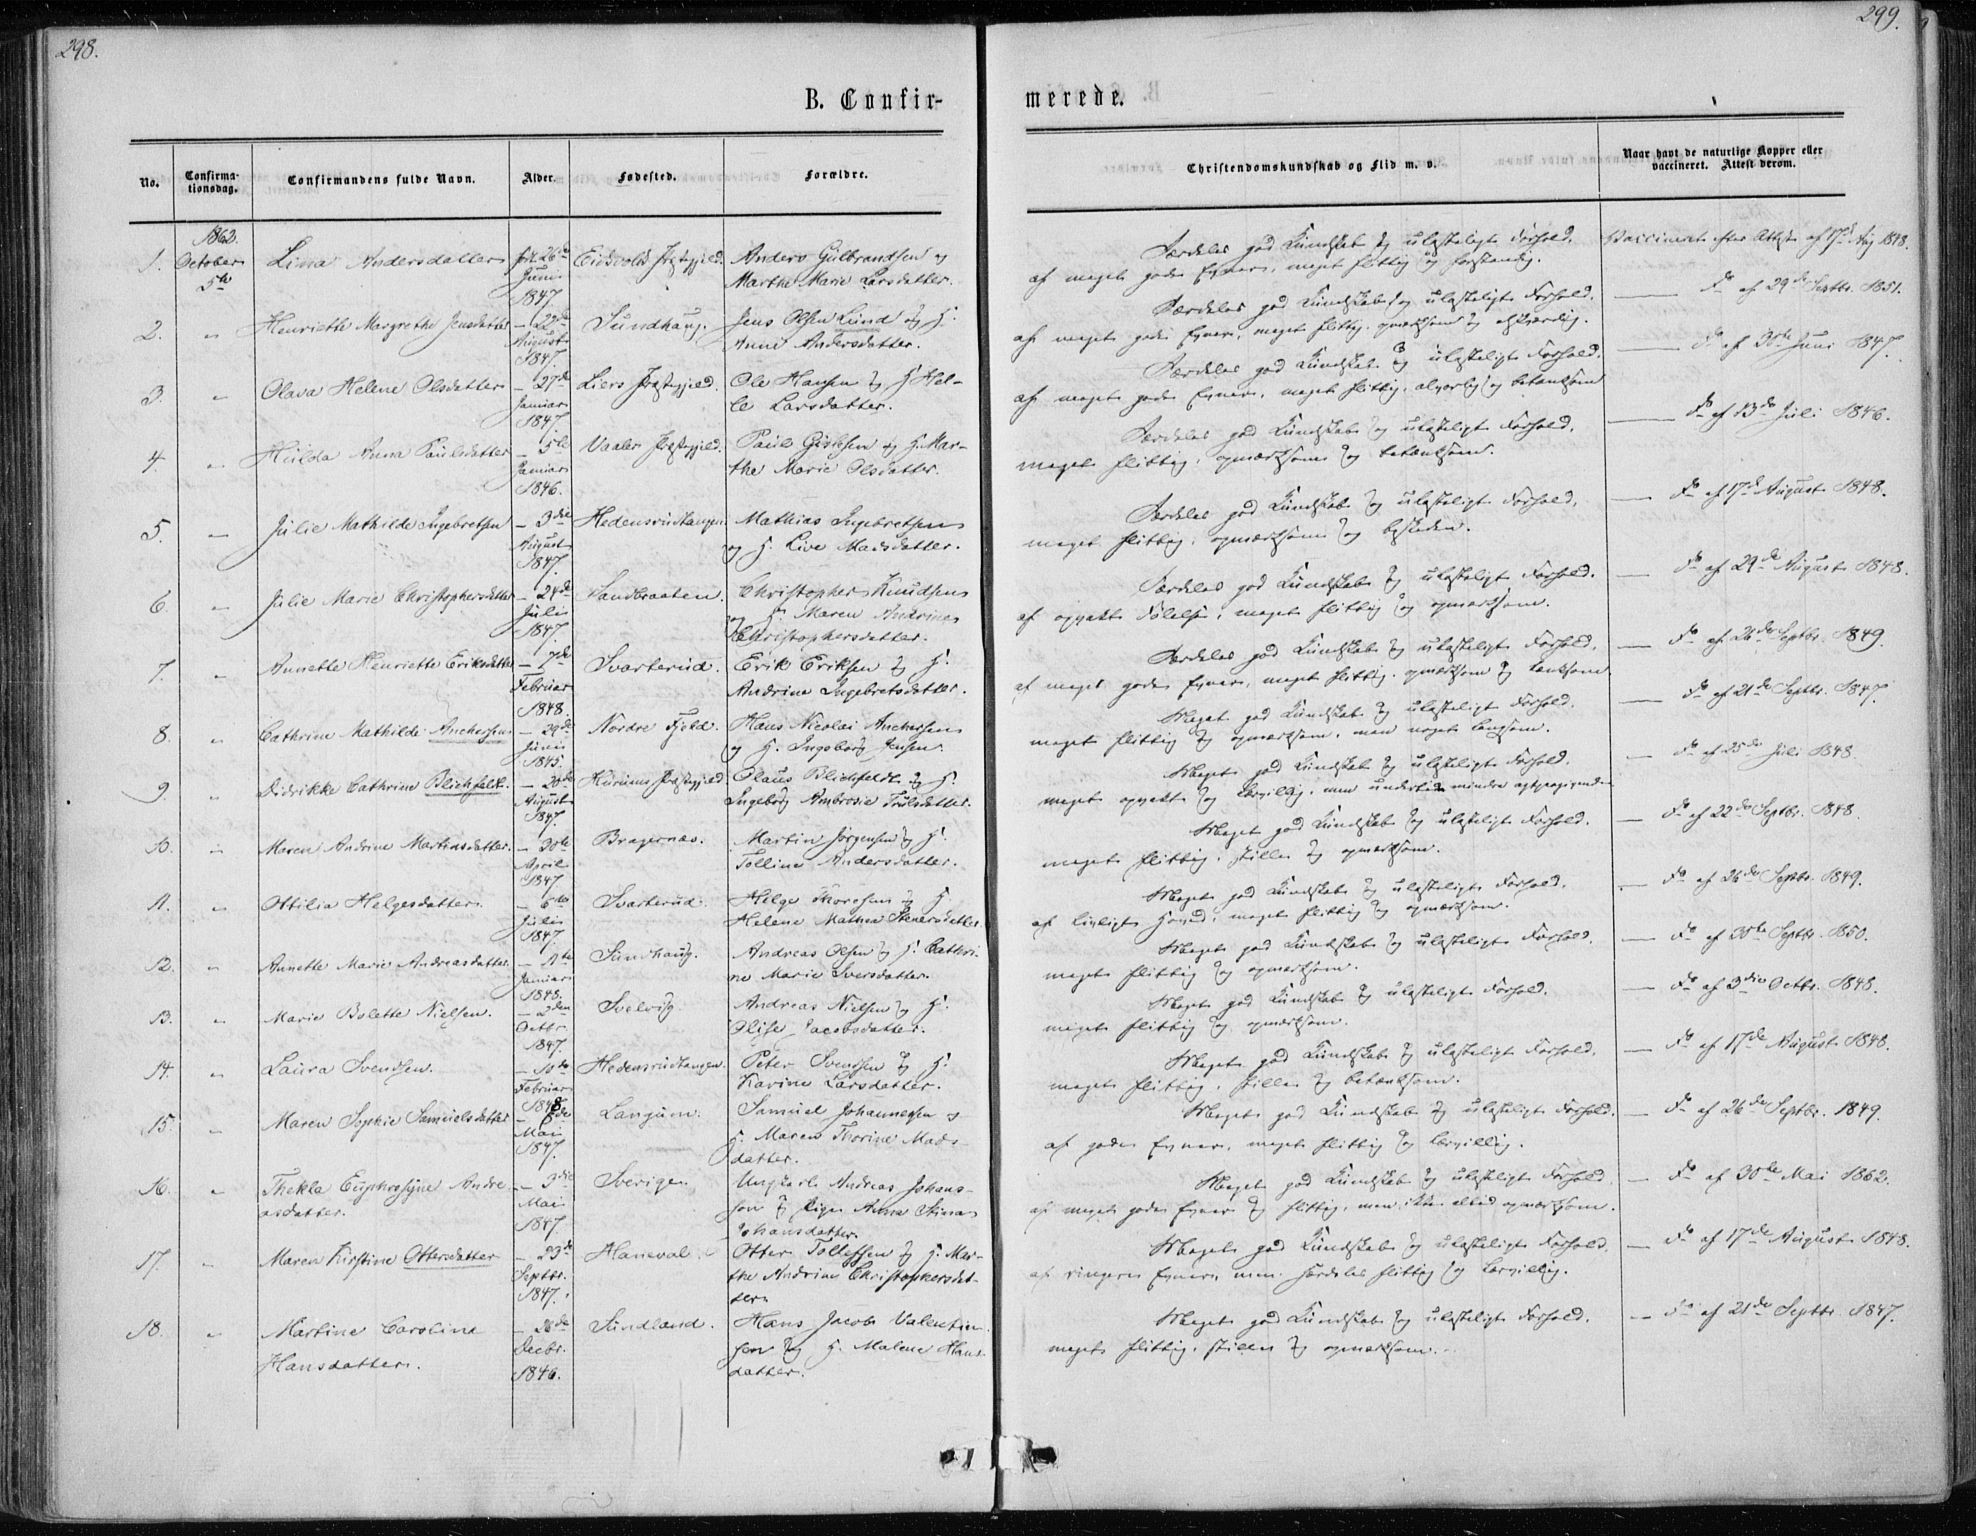 298.
299.
B. Confir-
merede.
No.
Confirma-
tionsdag.
Confirmandens fulde Navn.
Alder.
Fødested.
Forældre.
Christendomskundskab og Flid m. v.
Naar havt de naturlige Kopper eller
vaccineret. Attest derom.
1862.
1. October Lina Andersdatter 26de Eidsvolds Præstegjeld. Anders Gulbrandsen og
5te Juni Marthe Marie Larsdatter.
1847.
Særdeles god Kundskab og ulasteligt Forhold.
af meget gode Evner, meget flittig og forstandig.
Vaccineret efter Attest af 17de Aug 1848.
2. " Henriette Margrethe Jensdatter – 22de Sundhaug. Jens Olsen Lund og H.
August Anne Andersdatter.
1847.
Særdeles god Kundskab og ulasteligt Forhold.
af meget gode Evner, meget flittig, opmærksom og
— Do af 29de Septbr. 1851.
3. " Olava Helene Olsdatter – 27de Liers Præstegjeld. Ole Hansen og H. Hel-
Januar le Larsdatter.
1847.
Særdeles god Kundskab og ulasteligt Forhold.
af meget gode Evner, meget flittig, alvorlig og betænksom
— Do af 30te Juni 1847.
4. " Hulda Anna Paulsdatter – 5te Vaaler Præstegjeld. Paul og H. Mar-
Januar the Marie Olsdatter.
1846.
Særdeles god Kundskab og ulasteligt Forhold.
meget flittig, opmærksom og betænksom.
— Do af 13de Juli 1846.
5. " Julie Mathilde Ingebretsen – 3die Hedensrudtangen Mathias Ingebretsen
August og H. Live Madsdatter.
1847.
Særdeles god Kundskab og ulasteligt Forhold,
meget flittig, opmærksom og beskeden.
— Do af 17de August 1848.
6. " Julie Marie Christophersdatter – 24de Sandbraaten. Christopher Knudsen
Juli og H. Maren Andrine
1847. Christophersdatter.
Særdeles god Kundskab og ulasteligt Forhold.
af opvakt Følelse, meget flittig og opmærksom.
— Do af 29de August 1848.
7. " Annette Henriette Eriksdatter – 7de Svarterud. Erik Eriksen og H.
Februar Andrine Ingebretsdatter.
1848.
Særdeles god Kundskab og ulasteligt Forhold.
af meget gode Evner, meget flittig, opmærksom og tænksom.
— Do af 26de Septbr. 1849.
8. " Cathrine Mathilde Anchersen – 29de Nordre Fjeld. Hans Nicolai Anchersen
Juni og H. Ingeborg Jensen.
1845.
Meget god Kundskab og ulasteligt Forhold.
meget flittig og opmærksom, men noget langsom.
— Do af 21de Septbr. 1847.
9. " Didrikke Cathrine Blichfeldt. – 20de Hurums Præstegjeld Olaus Blichfeldt og H.
August Ingeborg Ambrosie Trulsdatter.
1847.
Meget god Kundskab og ulasteligt Forhold.
meget opvakt og lærvillig, men undertiden mindre
— Do af 25de Juli 1848.
10. " Maren Andrine Martinsdatter. – 30te Bragernæs. Martin Jørgensen og H.
April Tolline Andersdatter.
1847
Meget god Kundskab og ulasteligt Forhold.
meget flittig, stille og opmærksom.
— Do af 22de Septbr. 1848.
11. " Ottilia Helgesdatter – 6te Svarterud. Helge Thoresen og H.
Juli Helene Mathea Stenersdatter.
1847
Meget god Kundskab og ulasteligt Forhold.
af livligt Hoved, meget flittig og opmærksom.
— Do af 26de Septbr. 1849.
12. " Annette Marie Andreasdatter. – 11te Sundhaug. Andreas Olsen og H. Cathri-
Januar ne Marie Iversdatter.
1848.
Meget god Kundskab og ulasteligt Forhold.
meget flittig og opmærksom.
— Do af 30te Septbr. 1850.
13. " Marie Bolette Nielsen. – 2den Svelvig. Andreas Nielsen og H.
Octbr. Olise Jacobsdatter.
1847.
Meget god Kundskab og ulasteligt Forhold.
meget flittig og opmærksom.
— Do af 3die Octbr. 1848.
14. " Laura Svendsen. – 10de Hedensrudtangen. Peter Svendsen og H.
Februar Karine Larsdatter.
1848.
Meget god Kundskab og ulasteligt Forhold.
meget flittig, stille og betænksom.
— Do af 17de August 1848.
15. " Maren Sophie Samuelsdatter – Langum. Samuel Johannesen og
Mai H. Maren Thorine Mads-
1847. datter.
Meget god Kundskab og ulasteligt Forhold.
af gode Evner, meget flittig og lærvillig.
— Do af 26de Septbr. 1849.
16. " Thekla Euphrosyne Andre- – 3die Sverige. Ungkarl Andreas Johans-
asdatter. Mai son og Pige Anna Stina
1847. Johansdatter.
Meget god Kundskab og ulasteligt Forhold.
af meget gode Evner og flittig, men ikke altid opmærksom.
— Do af 30te Mai 1862.
17. " Maren Kirstine Ottersdatter – 23de Haneval. Otter Tollefsen og H. Mar-
Septbr. the Andrine Christophersdat-
1847. ter.
Meget god Kundskab og ulasteligt Forhold.
af ringere Evner, men særdeles flittig og lærvillig.
— Do af 17de August 1848.
18. " Martine Caroline – 26de Sundland. Hans Jacob Valentin-
Hansdatter. Decbr. sen og H. Malene Hans-
1846. datter.
Meget god Kundskab og ulasteligt Forhold.
meget flittig, stille og opmærksom.
— Do af 21de Septbr. 1847.